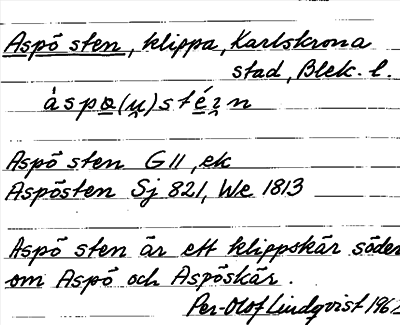 Aspö sten, klippa, Karlskrona
stad, Blek. l.
áspo̲(u̯)sté̲i̯n
Aspö sten G11, ek
Aspösten Sj 821, We 1813
Aspö sten är ett klippskär söder
om Aspö och Aspöskär.
Per-Olof Lindqvist